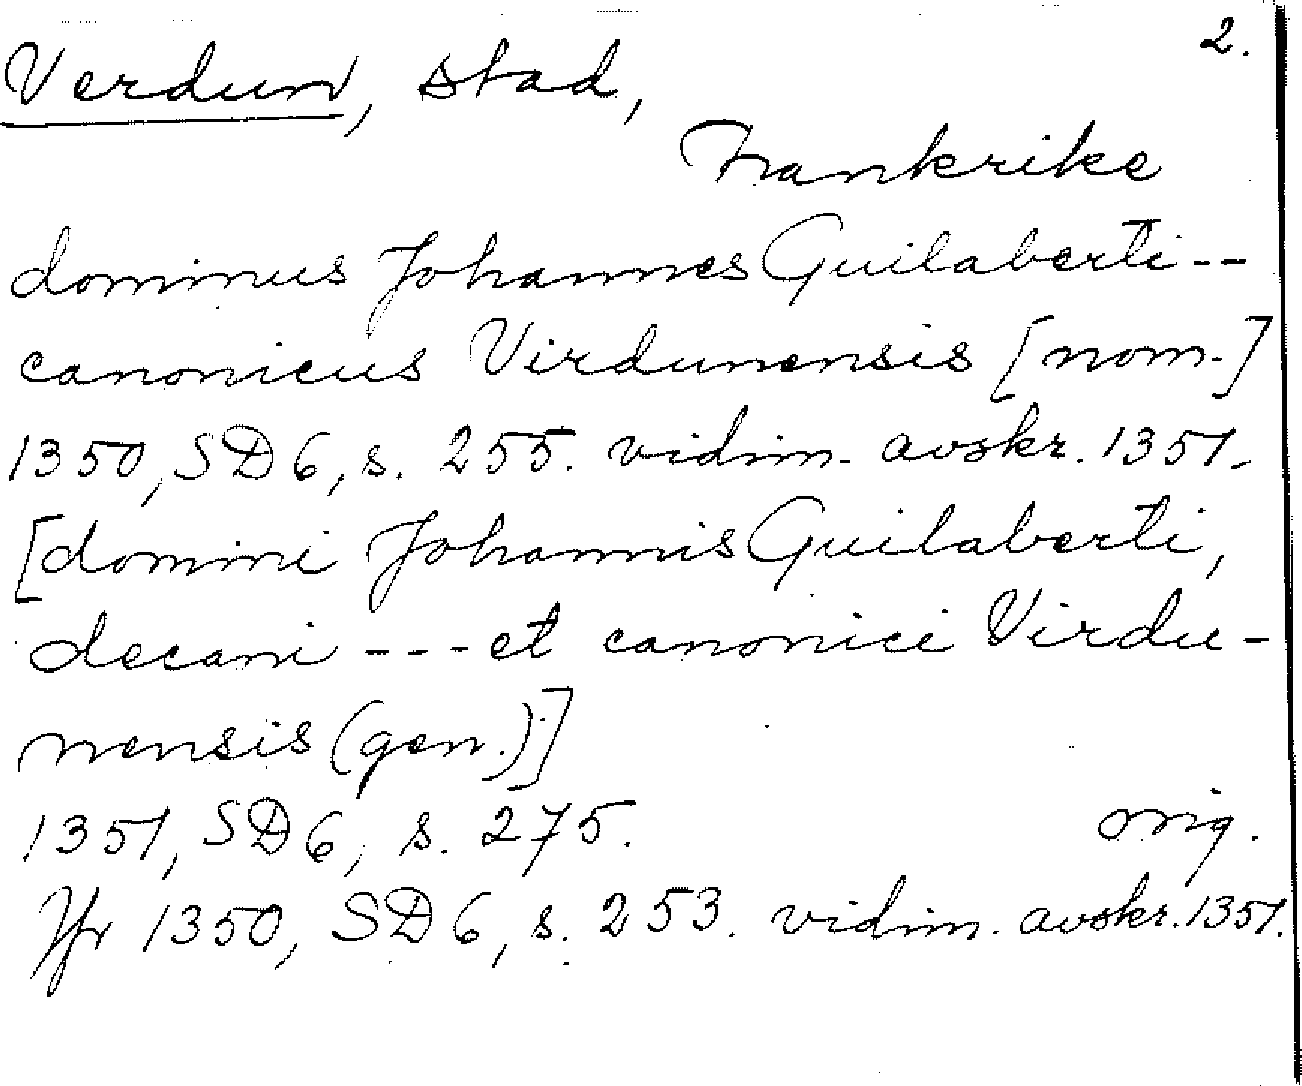 2.
Verdun, stad,
Frankrike
dominus Johannes Guilaberti --
canonicus Virdunensis [nom.]
1350, SD 6, s. 255. vidim. avskr. 1351.
[domini Johannis Guilaberti,
decani --- et canonici Virdu-
nensis (gen.)]
1351, SD 6, s. 275. orig.
Jfr 1350, SD 6, s. 253. vidim. avskr. 1351.